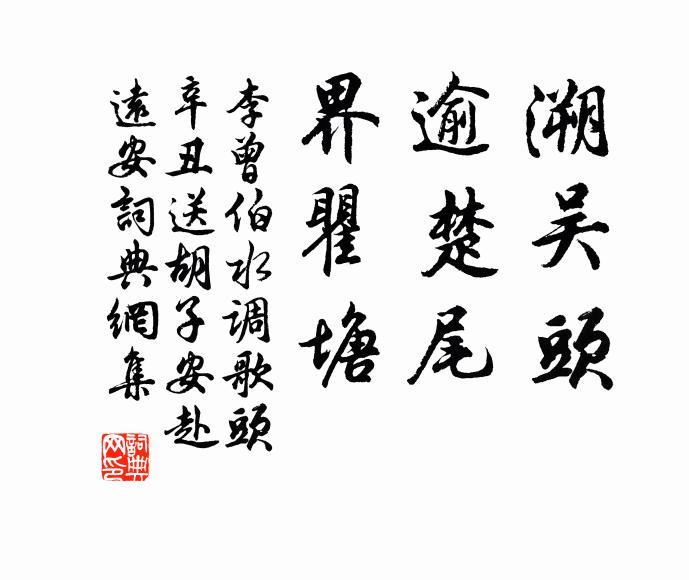 溯吴頭
逾楚尾
界瞿塘
李曾伯水调歌頭
辛丑送胡子安赴
遠安詞典網集
詞典
网印